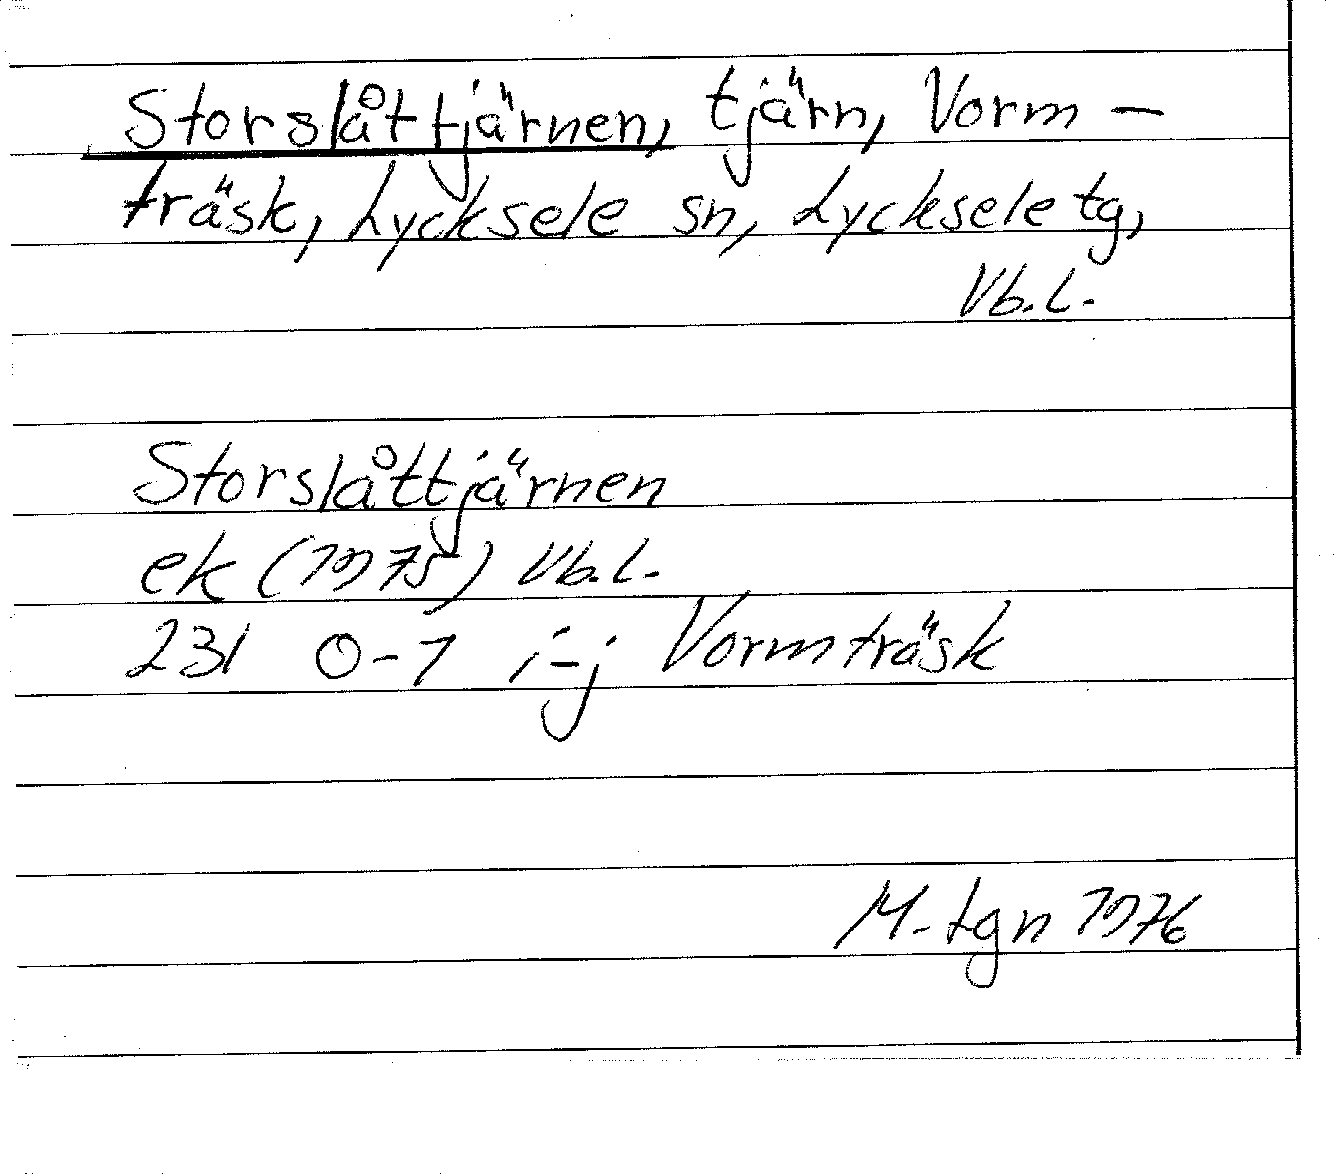 Storslåttjärnen, tjärn, Vorm-
träsk, Lycksele sn, Lycksele tg,
Vb.l.
Storslåttjärnen
ek (1975) Vb.l.
23I 0-1 i-j Vormträsk
M-tgn 1976